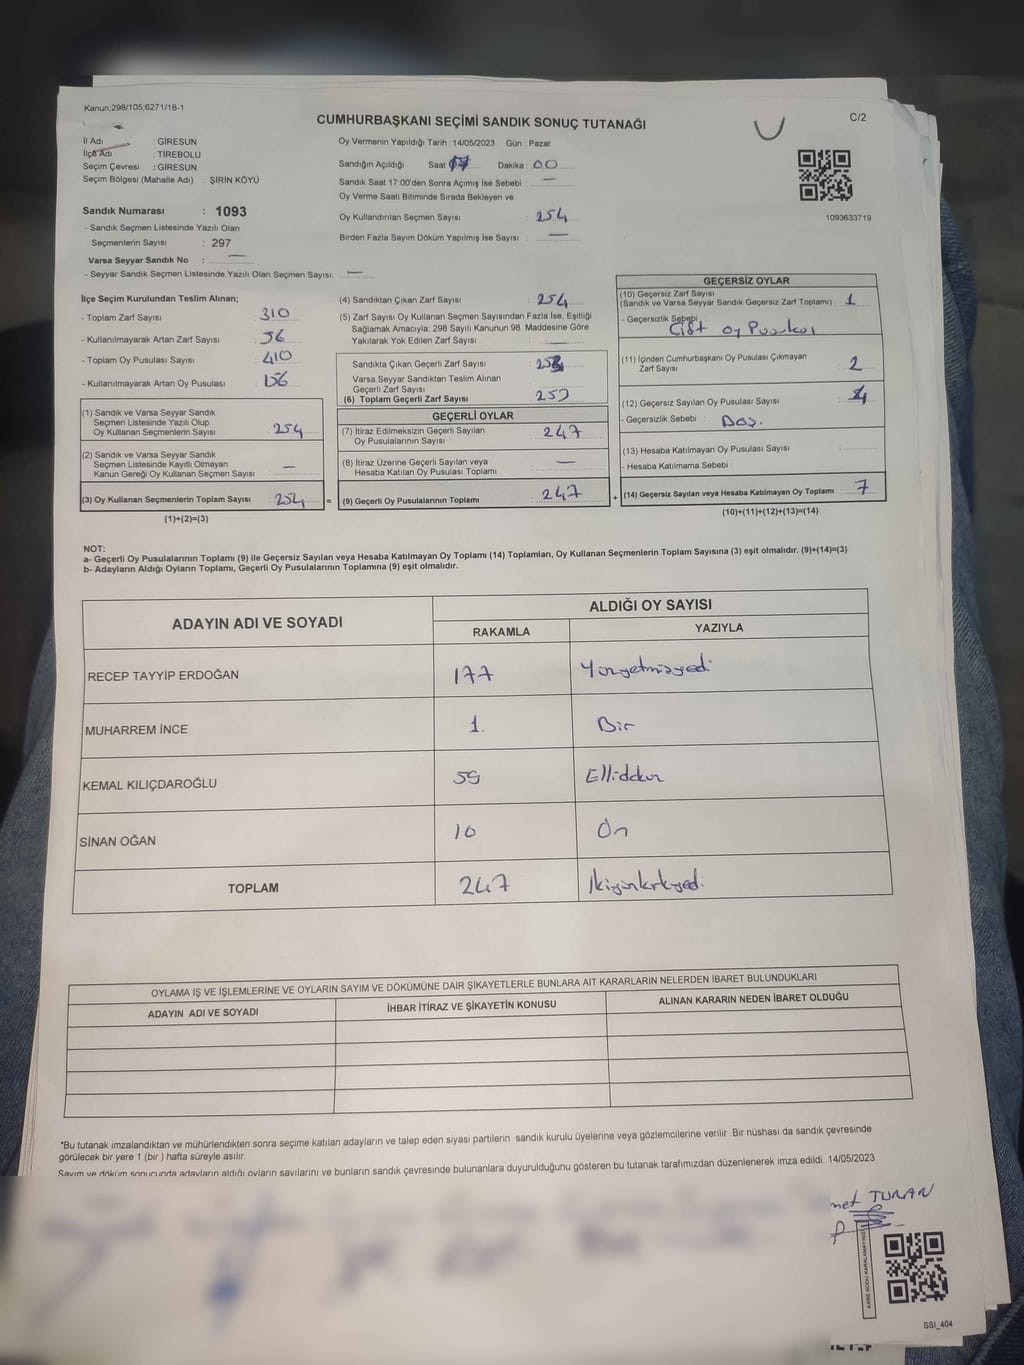 Kanun:298/105;6271/18-1
C/2
CUMHURBAŞKANI SEÇİMİ SANDIK SONUÇ TUTANAĞI
İl Adı : GİRESUN
İlçe Adı : TİREBOLU
Seçim Çevresi : GİRESUN
Seçim Bölgesi (Mahalle Adı) : ŞİRİN KÖYÜ
Sandık Numarası : 1093
- Sandık Seçmen Listesinde Yazılı Olan
Seçmenlerin Sayısı : 297
Varsa Seyyar Sandık No : —
- Seyyar Sandık Seçmen Listesinde Yazılı Olan Seçmen Sayısı: —
Oy Vermenin Yapıldığı Tarih : 14/05/2023 Gün : Pazar
Sandığın Açıldığı Saat Dakika : 00
Sandık Saat 17:00'den Sonra Açımış İse Sebebi : —
Oy Verme Saati Bitiminde Sırada Bekleyen ve
Oy Kullandırılan Seçmen Sayısı : 254
Birden Fazla Sayım Döküm Yapılmış İse Sayısı : —
1093633719
İlçe Seçim Kurulundan Teslim Alınan;
- Toplam Zarf Sayısı : 310
- Kullanılmayarak Artan Zarf Sayısı : 56
- Toplam Oy Pusulası Sayısı : 410
- Kullanılmayarak Artan Oy Pusulası : 156
(1) Sandık ve Varsa Seyyar Sandık
Seçmen Listesinde Yazılı Olup
Oy Kullanan Seçmenlerin Sayısı : 254
(2) Sandık ve Varsa Seyyar Sandık
Seçmen Listesinde Kayıtlı Olmayan
Kanun Gereği Oy Kullanan Seçmen Sayısı : —
(3) Oy Kullanan Seçmenlerin Toplam Sayısı : 254 =
(1)+(2)=(3)
(4) Sandıktan Çıkan Zarf Sayısı : 254
(5) Zarf Sayısı Oy Kullanan Seçmen Sayısından Fazla İse, Eşitliği
Sağlamak Amacıyla; 298 Sayılı Kanunun 98. Maddesine Göre
Yakılarak Yok Edilen Zarf Sayısı : —
Sandıkta Çıkan Geçerli Zarf Sayısı : 253
Varsa Seyyar Sandıktan Teslim Alınan
Geçerli Zarf Sayısı
(6) Toplam Geçerli Zarf Sayısı : 253
GEÇERLİ OYLAR
(7) İtiraz Edilmeksizin Geçerli Sayılan
Oy Pusulalarının Sayısı : 247
(8) İtiraz Üzerine Geçerli Sayılan veya
Hesaba Katılan Oy Pusulası Toplamı : —
(9) Geçerli Oy Pusulalarının Toplamı : 247 +
GEÇERSİZ OYLAR
(10) Geçersiz Zarf Sayısı
(Sandık ve Varsa Seyyar Sandık Geçersiz Zarf Toplamı) : 1
- Geçersizlik Sebebi : Çift oy Pusulası
(11) İçinden Cumhurbaşkanı Oy Pusulası Çıkmayan
Zarf Sayısı : 2
(12) Geçersiz Sayılan Oy Pusulası Sayısı : 4
- Geçersizlik Sebebi : Boş.
(13) Hesaba Katılmayan Oy Pusulası Sayısı :
- Hesaba Katılmama Sebebi :
(14) Geçersiz Sayılan veya Hesaba Katılmayan Oy Toplamı : 7
(10)+(11)+(12)+(13)=(14)
NOT:
a- Geçerli Oy Pusulalarının Toplamı (9) ile Geçersiz Sayılan veya Hesaba Katılmayan Oy Toplamı (14) Toplamları, Oy Kullanan Seçmenlerin Toplam Sayısına (3) eşit olmalıdır. (9)+(14)=(3)
b- Adayların Aldığı Oyların Toplamı, Geçerli Oy Pusulalarının Toplamına (9) eşit olmalıdır.
ADAYIN ADI VE SOYADI ALDIĞI OY SAYISI
RAKAMLA YAZIYLA
RECEP TAYYİP ERDOĞAN 177 Yüzyetmişyedi
MUHARREM İNCE 1. Bir
KEMAL KILIÇDAROĞLU 59 Ellidokuz
SİNAN OĞAN 10 On
TOPLAM 247 İkiyüzkırkyedi
OYLAMA İŞ VE İŞLEMLERİNE VE OYLARIN SAYIM VE DÖKÜMÜNE DAİR ŞİKAYETLERLE BUNLARA AİT KARARLARIN NELERDEN İBARET BULUNDUKLARI
ADAYIN ADI VE SOYADI İHBAR İTİRAZ VE ŞİKAYETİN KONUSU ALINAN KARARIN NEDEN İBARET OLDUĞU
*Bu tutanak imzalandıktan ve mühürlendikten sonra seçime katılan adayların ve talep eden siyasi partilerin sandık kurulu üyelerine veya gözlemcilerine verilir. Bir nüshası da sandık çevresinde
görülecek bir yere 1 (bir ) hafta süreyle asılır.
Sayım ve döküm sonucunda adayların aldığı oyların sayılarını ve bunların sandık çevresinde bulunanlara duyurulduğunu gösteren bu tutanak tarafımızdan düzenlenerek imza edildi. 14/05/2023
met TURAN
KARE KODU KARALAMAYINIZ
SSI_404